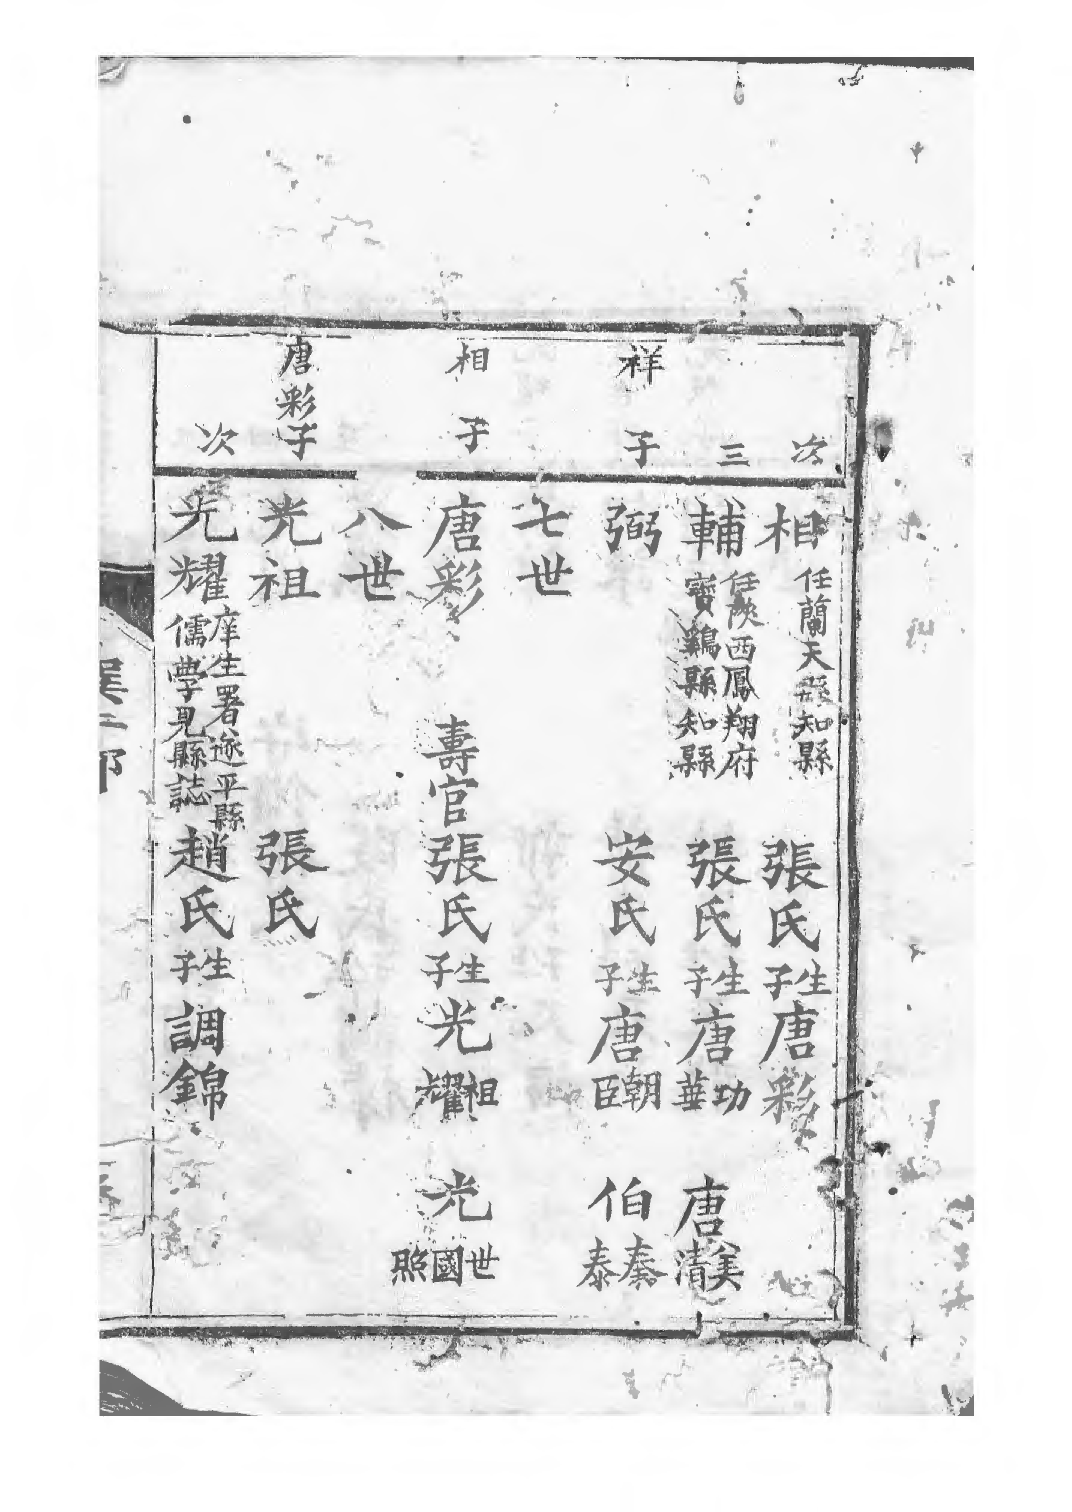 次 相 任蘭天縣知縣 張氏 生子 唐彩
三 輔 任陝西鳳翔府寶鷄縣知縣 張氏 生子 唐功華 唐美清
祥子 弼 安氏 生子 唐朝臣 伯秦泰
七世
相子 唐彩 壽官 張氏 生子 光祖耀 光世國照
八世
唐彩子 光祖 張氏
次 光耀 庠生署遂平縣儒學見縣誌 趙氏 生子 調錦